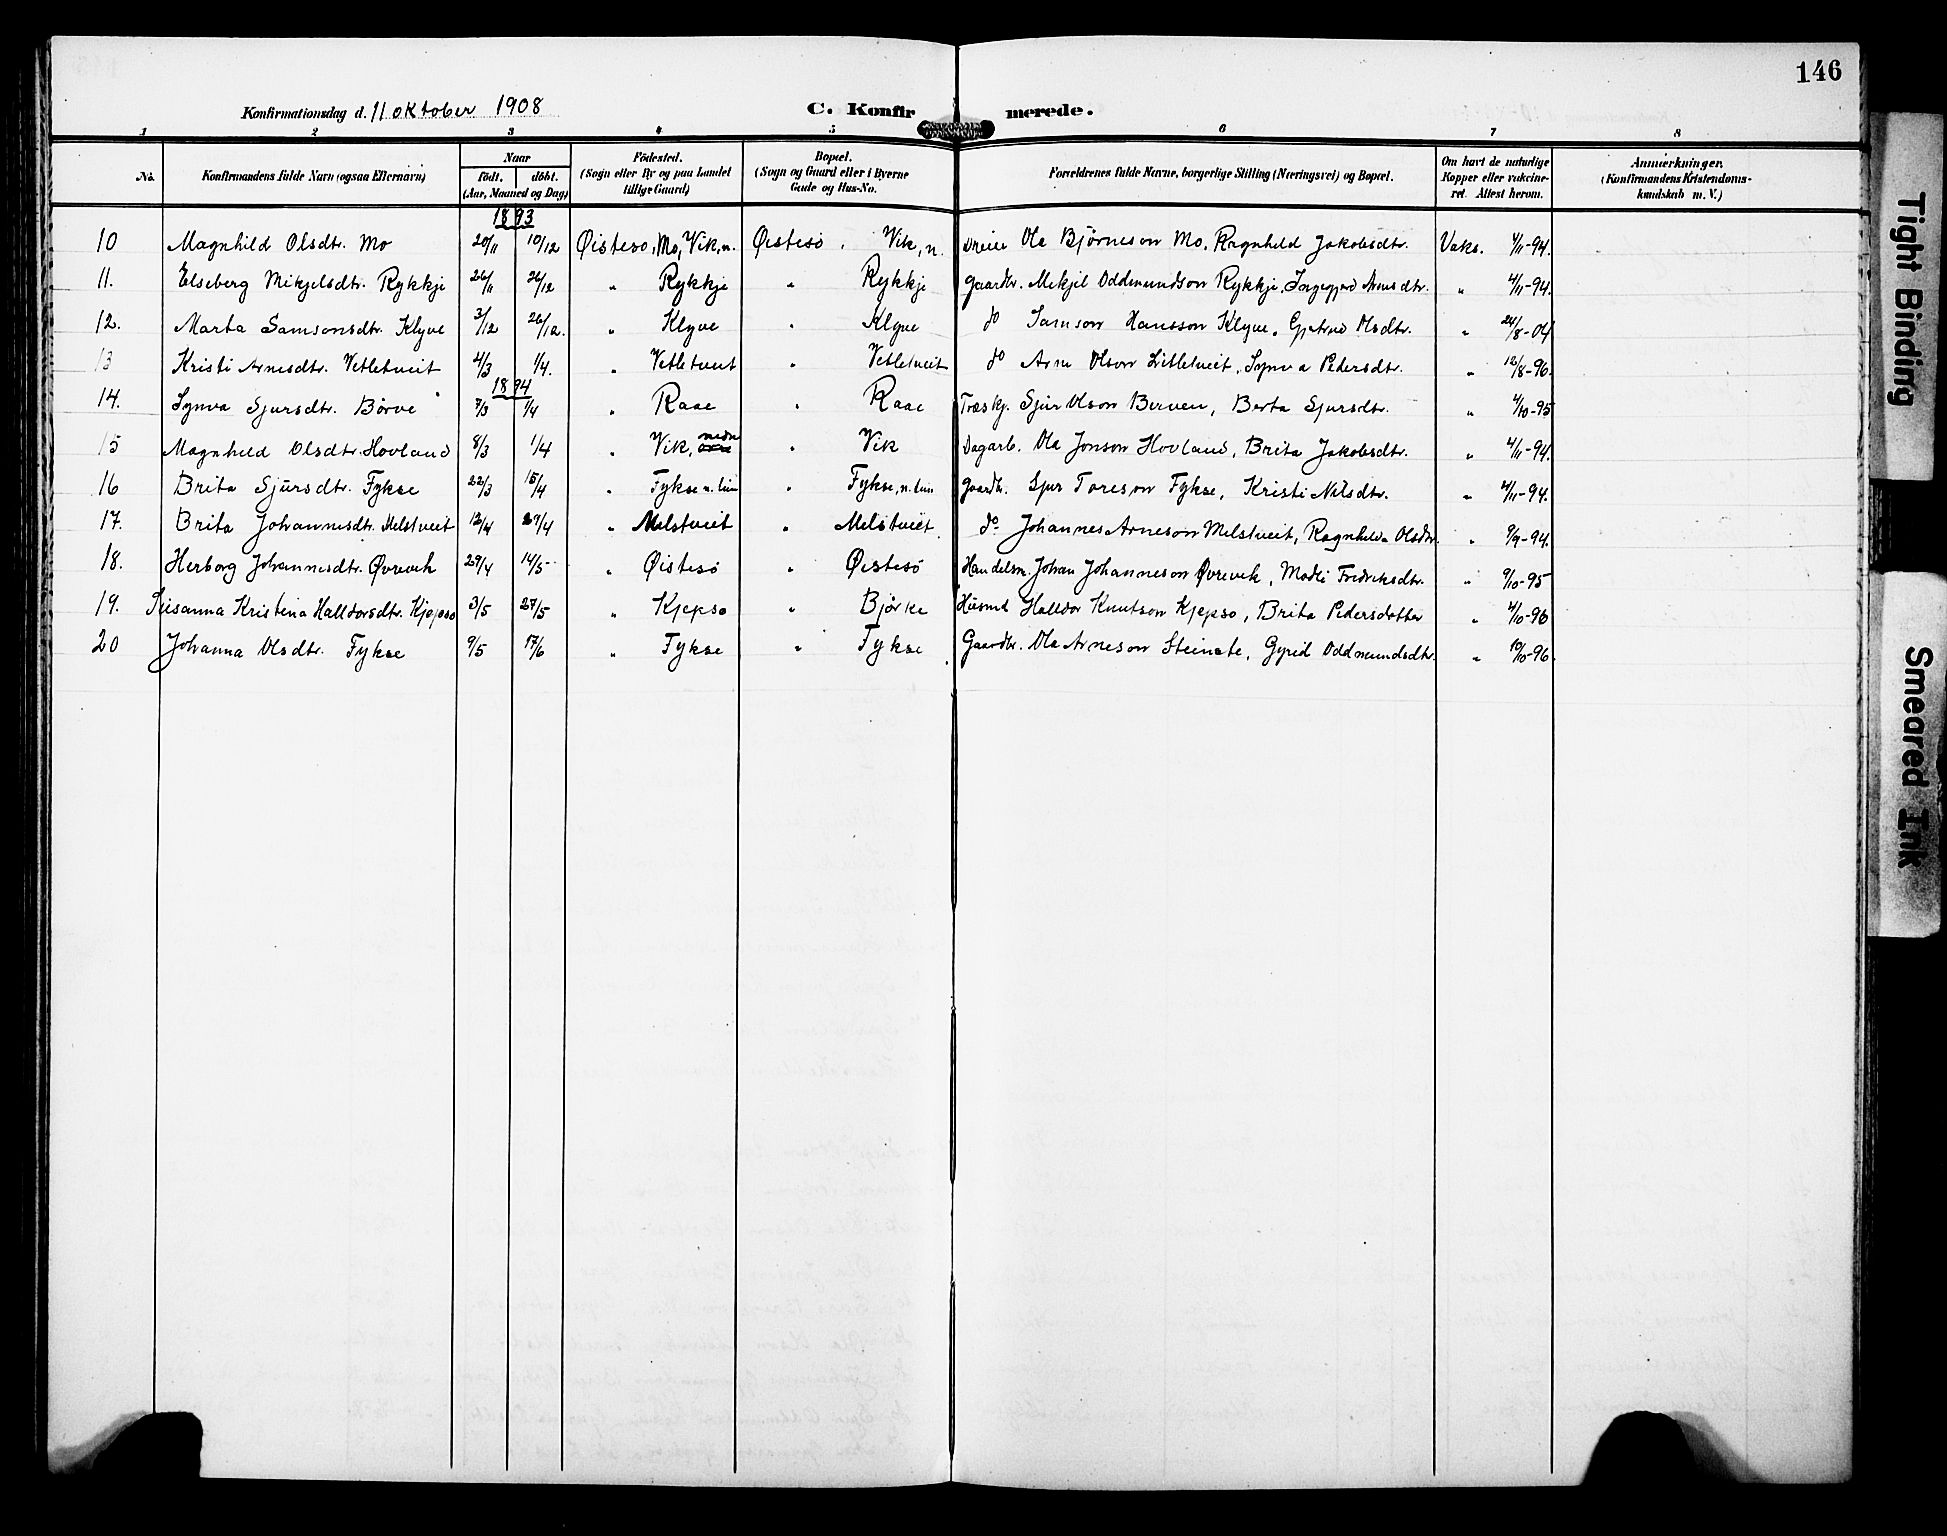 146
Konfirmationsdag d. 11 oktober 1908 C. Konfirmerede.
1 2 3 4 5 6 7 8
No. Konfirmandens fulde Navn (ogsaa Efternavn) Naar födt. döbt. (Aar, Maaned og Dag) Födested. (Sogn eller By og paa Landet tillige Gaard) Bopæl. (Sogn og Gaard eller i Byerne Gade og Hus-No. Forældrenes fulde Navne, borgerlige Stilling (Næringsvei) og Bopæl. Om havt de naturlige Kopper eller vakcineret. Attest herom. Anmærkninger. (Konfirmandens Kristendomskundskab m. V.)
1893
10 Magnhild Olsdtr. Mo 20/11 10/12 Øistesø, Mo, Vik, n. Øistesø. Vik, n. Ola Bjørneson Mo, Ragnhild Jakobsdtr. Vaks. 4/11-94.
11. Elseberg Mikjelsdtr. Rykkje 26/11 26/12 " Rykkje " Rykkje Gaardbr. Mikjel Oddmundson Rykkje, Ingegjerd Arnsdtr. " 4/11-94.
12. Marta Samsonsdtr. Klyve 3/12 26/12. " Klyve " Klyve do Samson Hansson Klyve, Gjertrud Olsdtr. " 24/8-04
13 Kristi Arnesdtr. Vetletveit 4/3 1/4. " Vetletveit " Vetletveit do Arne Olson Litletveit, Synva Pedersdtr. " 12/8-96.
1894
14. Synva Sjursdtr. Børve 7/3 1/4 " Raae " Raae Træskj. Sjur Olson Berven, Berta Sjursdtr. " 4/10-95
15 Magnhild Olsdtr. Hovland 8/3 1/4 " Vik, nedre " Vik Dagarb. Ola Jonson Hovland, Brita Jakobsdtr. " 4/11-94.
16 Brita Sjursdtr. Fykse 22/3 15/4 " Fykse n. tun " Fykse, n. tun Gaardbr. Sjur Toreson Fykse, Kristi Nilsdtr. " 4/11-94.
17. Brita Johannesdtr. Melstveit 12/4 29/4 " Melstveit " Melstveit. do. Johannes Arneson Melstveit, Ragnhilda Olsdtr. " 9/9-94.
18. Herborg Johannesdtr. Øvrevik 29/4 14/5 " Øistesø " Øistesø Handelsm. Johan Johanneson Øvrevik, Modli Fredriksdtr. " 9/10-95
19. Susanna Kristina Halldorsdtr. Kjepso 3/5 27/5 " Kjepso " Bjørke Husmd Halldor Knutson Kjepso, Brita Pedersdotter " 4/10-96
20 Johanna Olsdtr. Fykse 9/5 17/6 " Fykse " Fykse. Gaardbr. Ola Arneson Steinstø, Gyrid Oddmundsdtr. " 10/10-96.
Tight Binding
Smeared Ink